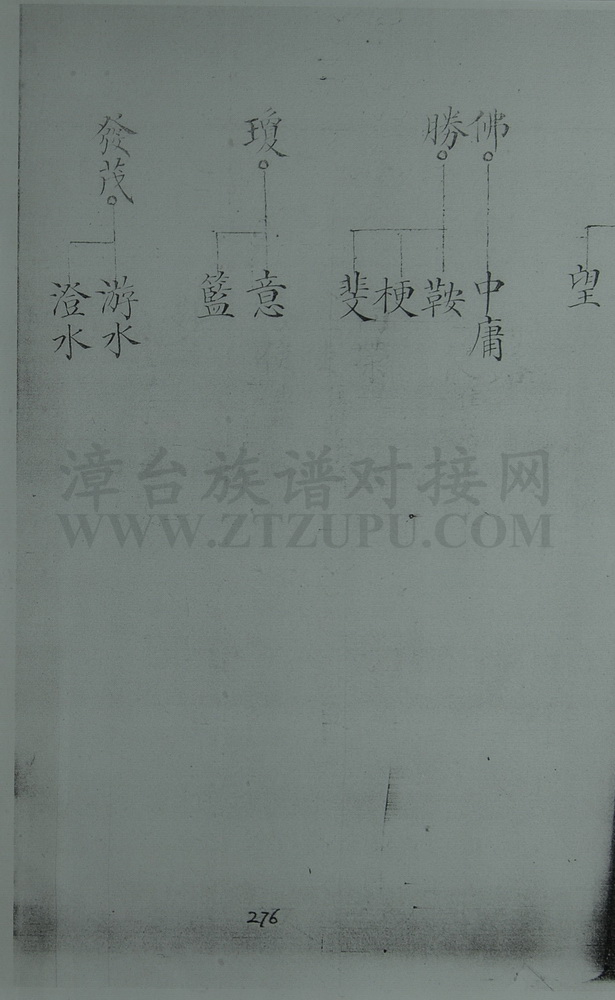 佛
勝
瓊
發茂
望
中庸
鞍
梗
斐
意
籃
游水
澄水
漳台族谱对接网
WWW.ZTZUPU.COM
276